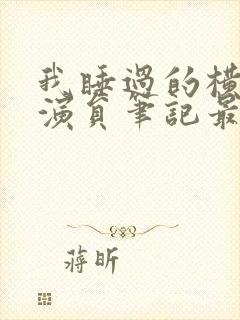 我睡过的横
演員筆記最
蔣昕